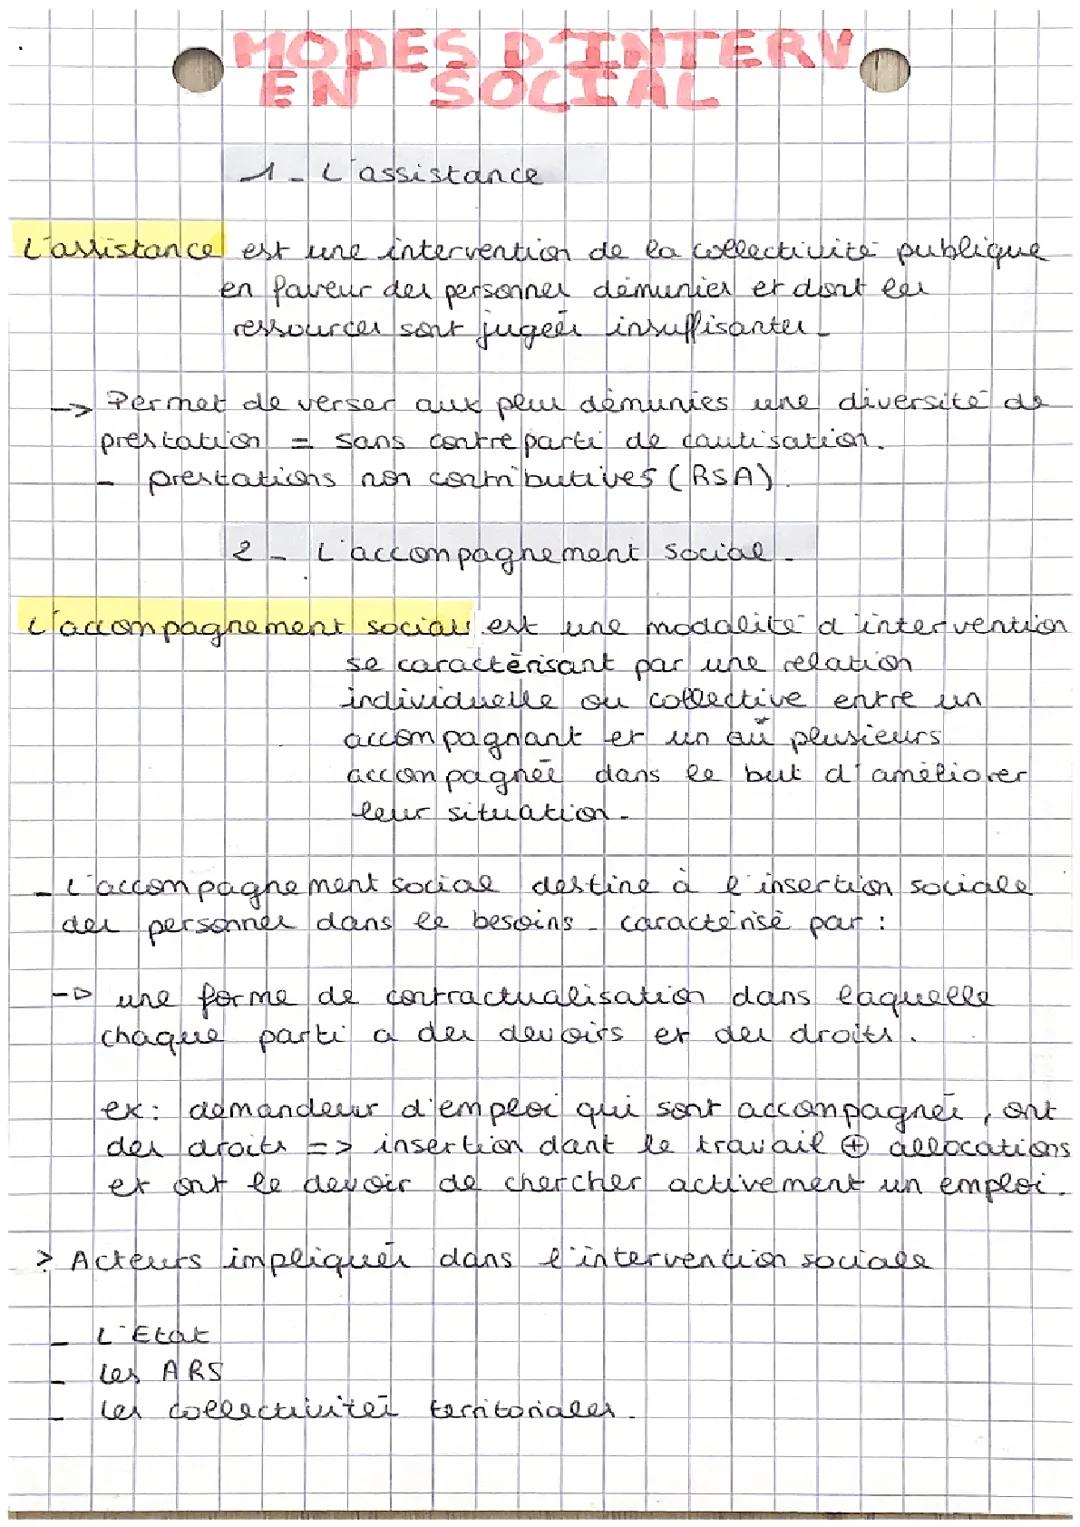 MODES D'INTERV
EN SOCIAL
1 - L'assistance
L'assistance est une intervention de la collectivité publique
en faveur des personnes démunies et dont les
ressources sont jugées insuffisantes -
-> Permet de verser aux plus démunies une diversité de
prestation = sans contre parti de cautisation.
- prestations non contributives (RSA).
2 - L'accompagnement social -
L'accompagnement social est une modalité d'intervention
se caractérisant par une relation
individuelle ou collective entre un
accompagnant et un où plusieurs
accompagnée dans le but d'améliorer
leur situation -
- L'accompagnement social destine à l'insertion sociale
des personnes dans le besoins - caractérisé par :
-> une forme de contractualisation dans laquelle
chaque parti a des devoirs et des droits.
ex : demandeur d'emploi qui sont accompagnés, ont
des droits => insertion dant le travail ⊕ allocations
et ont le devoir de chercher activement un emploi.
> Acteurs impliqués dans l'intervention sociale
- L'Etat
- Les ARS
- Les collectivités territoriales.